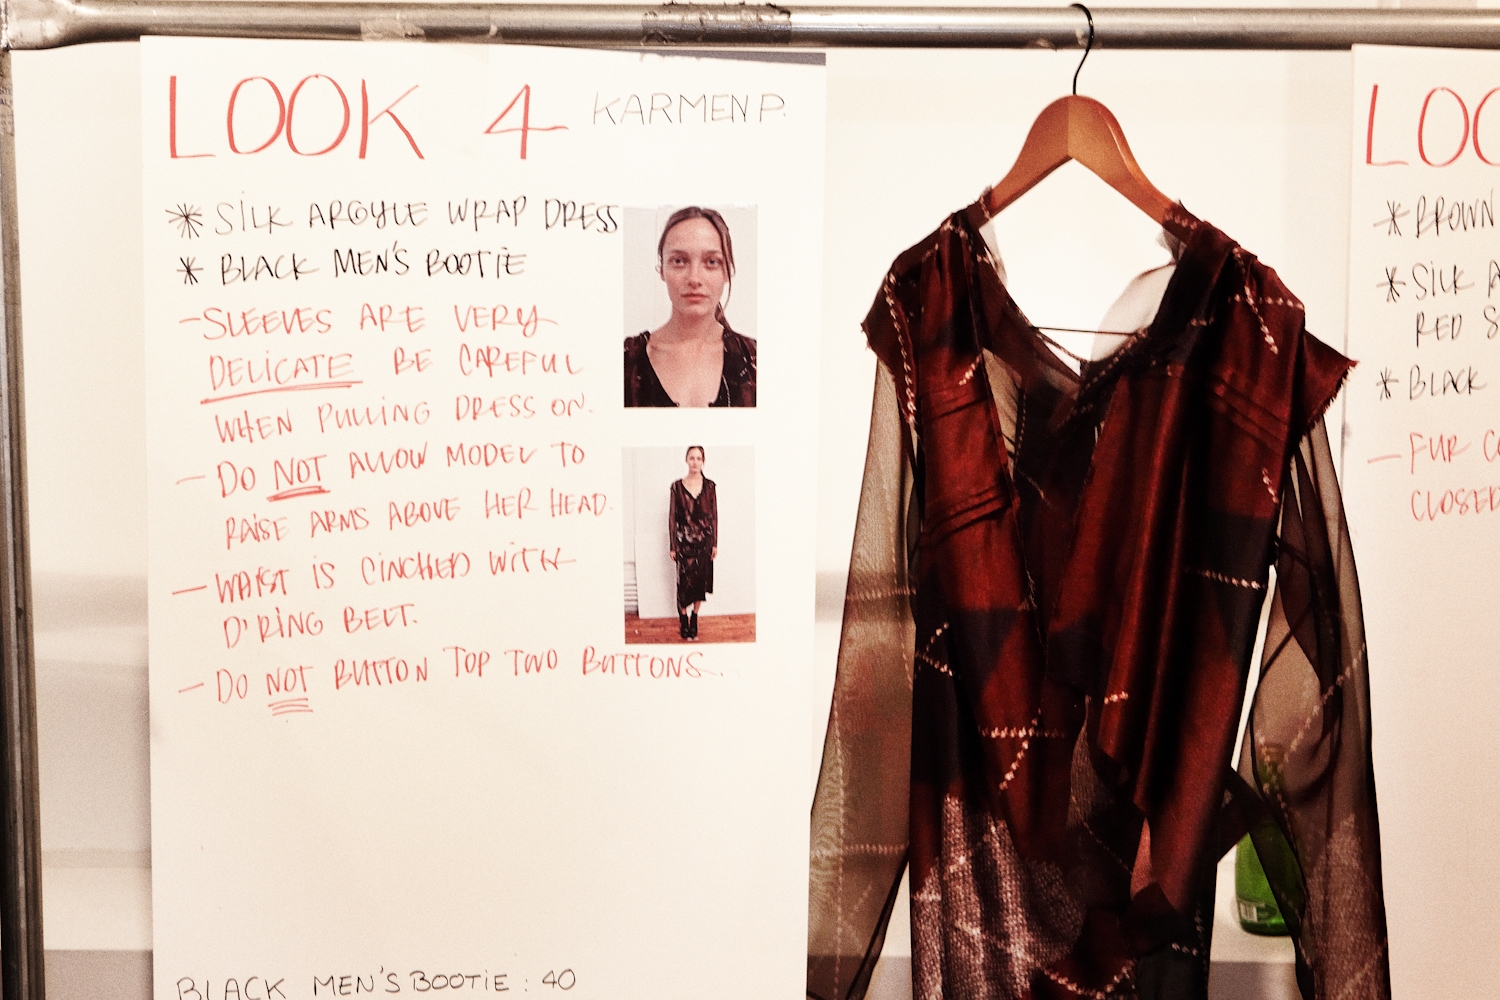 LOOK 4 KARMEN P.
* SILK ARGYLE WRAP DRESS
* BLACK MEN'S BOOTIE
- SLEEVES ARE VERY
DELICATE BE CAREFUL
WHEN PULLING DRESS ON.
- DO NOT ALLOW MODEL TO
RAISE ARMS ABOVE HER HEAD.
- WAIST IS CINCHED WITH
D'RING BELT.
- DO NOT BUTTON TOP TWO BUTTONS.
BLACK MEN'S BOOTIE : 40
LOO
* BROWN
* SILK A
RED S
* BLACK
- FUR CO
CLOSED